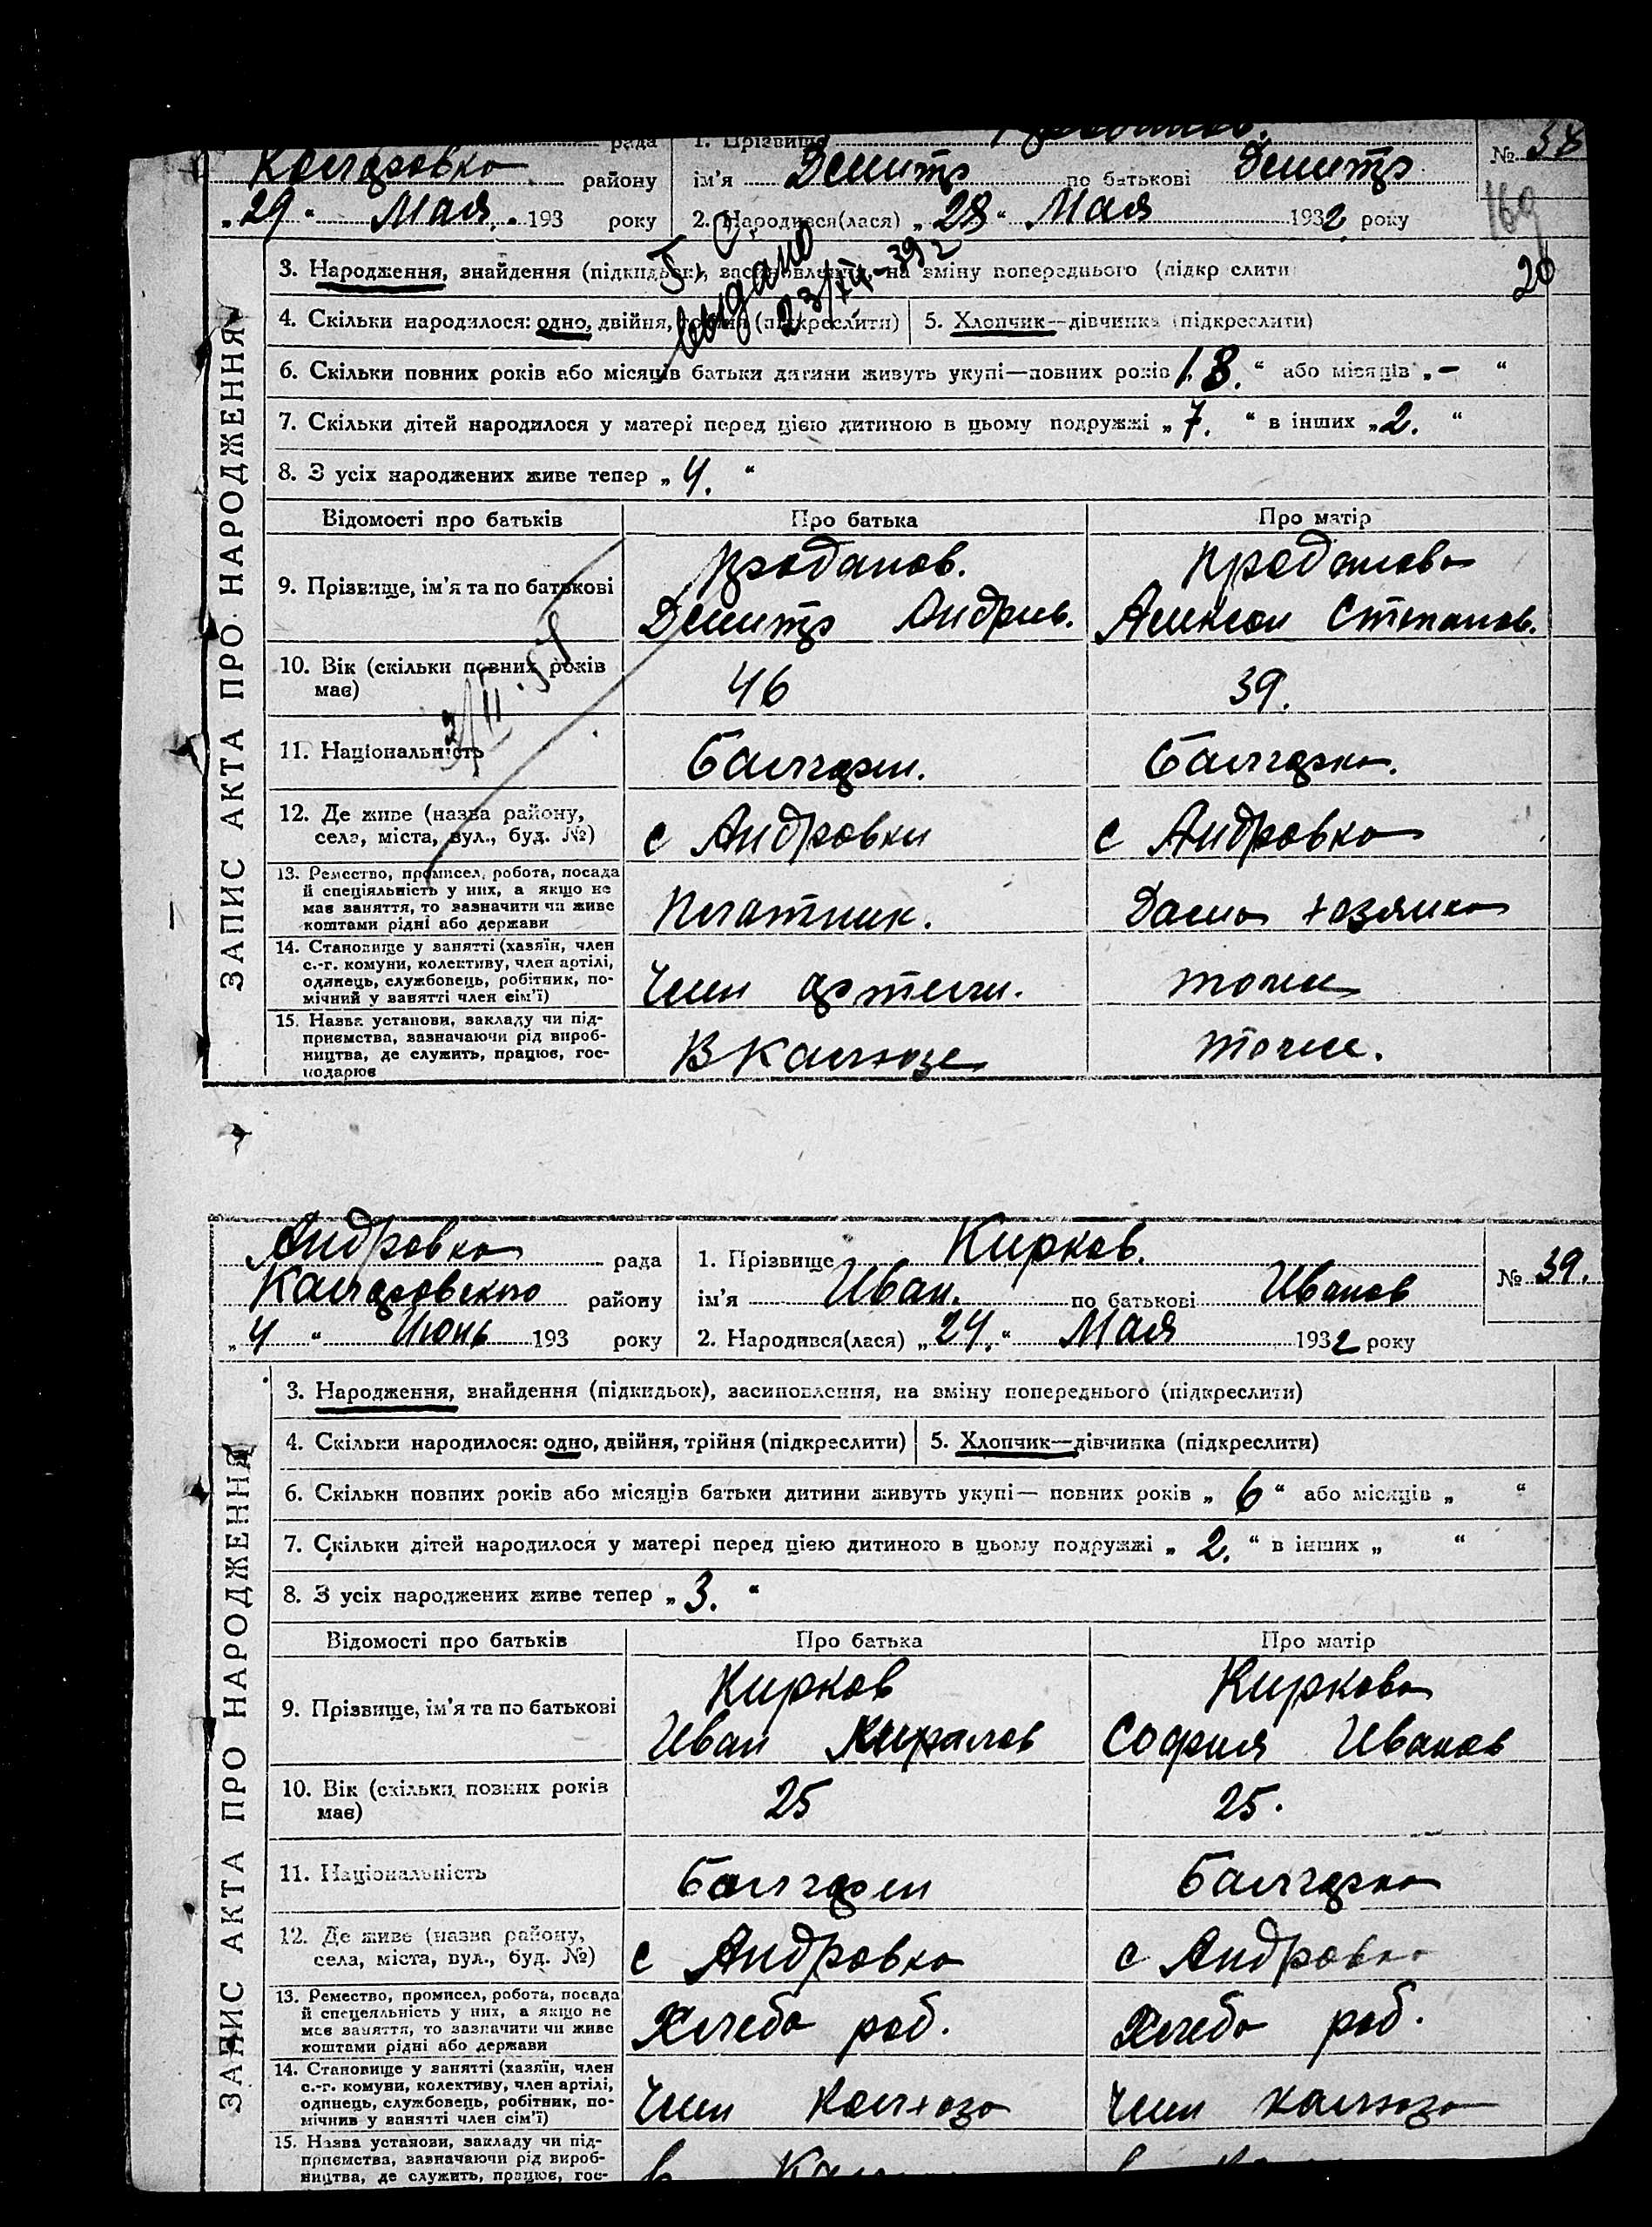 рада 1. Прізвище
району ім'я Дмитр по батькові Дмитр № 38
„29“ Мая 193 року 2. Народився(лася) „28“ Мая 1932 року 169
3. Народження, знайдення (підкидьок), засиновлення, на зміну попереднього (підкр слити 20
видано
4. Скільки народилося: одно, двійня, трійня (підкреслити) 5. Хлопчик—дівчинка (підкреслити)
6. Скільки повних років або місяців батьки дитини живуть укупі—повних років „18.“ або місяців „-“
7. Скільки дітей народилося у матері перед цією дитиною в цьому подружжі „7.“ в інших „2.“
8. З усіх народжених живе тепер „4.“
ЗАПИС АКТА ПРО НАРОДЖЕННЯ
Відомості про батьків Про батька Про матір
9. Прізвище, ім'я та по батькові Проданов. Проданова
Дмитр Андрив. Степанов.
10. Вік (скільки повних років 46 39.
має)
11. Національність Балгари. Балгарка.
12. Де живе (назва району, с Андровки с Андровка
села, міста, вул., буд. №)
13. Ремество, промисел, робота, посада
й спеціяльність у них, а якщо не Платник. Дама хозяика
має заняття, то зазначити чи живе
коштами рідні або держави
14. Становище у занятті (хазяїн, член
с.-г. комуни, колективу, член артілі, Член артели. тоже
одинець, службовець, робітник, по-
мічний у занятті член сім'ї)
15. Назва установи, закладу чи під-
приємства, зазначаючи рід вироб- В Калхозе тоже.
ництва, де служить, працює, гос-
подарює
Андровка рада 1. Прізвище Кирков. № 39.
Калгаровского району ім'я Иван. по батькові Иванов
„4“ Июнь 193 року 2. Народився(лася) „24.“ Мая 1932 року
3. Народження, знайдення (підкидьок), засиновлення, на зміну попереднього (підкреслити)
4. Скільки народилося: одно, двійня, трійня (підкреслити) 5. Хлопчик—дівчинка (підкреслити)
6. Скільки повних років або місяців батьки дитини живуть укупі— повних років „6“ або місяців „ “
7. Скільки дітей народилося у матері перед цією дитиною в цьому подружжі „2.“ в інших „ “
8. З усіх народжених живе тепер „3.“
ЗАПИС АКТА ПРО НАРОДЖЕННЯ
Відомості про батьків Про батька Про матір
9. Прізвище, ім'я та по батькові Кирков Киркова
Иван Кирилов София Иванов
10. Вік (скільки повних років 25 25.
має)
11. Національність Балгари Балгарка
12. Де живе (назва району, с Андровка с Андровка
села, міста, вул., буд. №)
13. Ремество, промисел, робота, посада
й спецеяльність у них, а якщо не Хлеба роб. Хлеба роб.
має заняття, то зазначити чи живе
коштами рідні або держави
14. Становище у занятті (хазяїн, член
с.-г. комуни, колективу, член артілі, Член Калхоза Член калхоза
одинець, службовець, робітник, по-
мічнив у занятті член сім'ї)
15. Назва установи, закладу чи під-
приємства, зазначаючи рід вироб-
ництва, де служить, працює, гос-